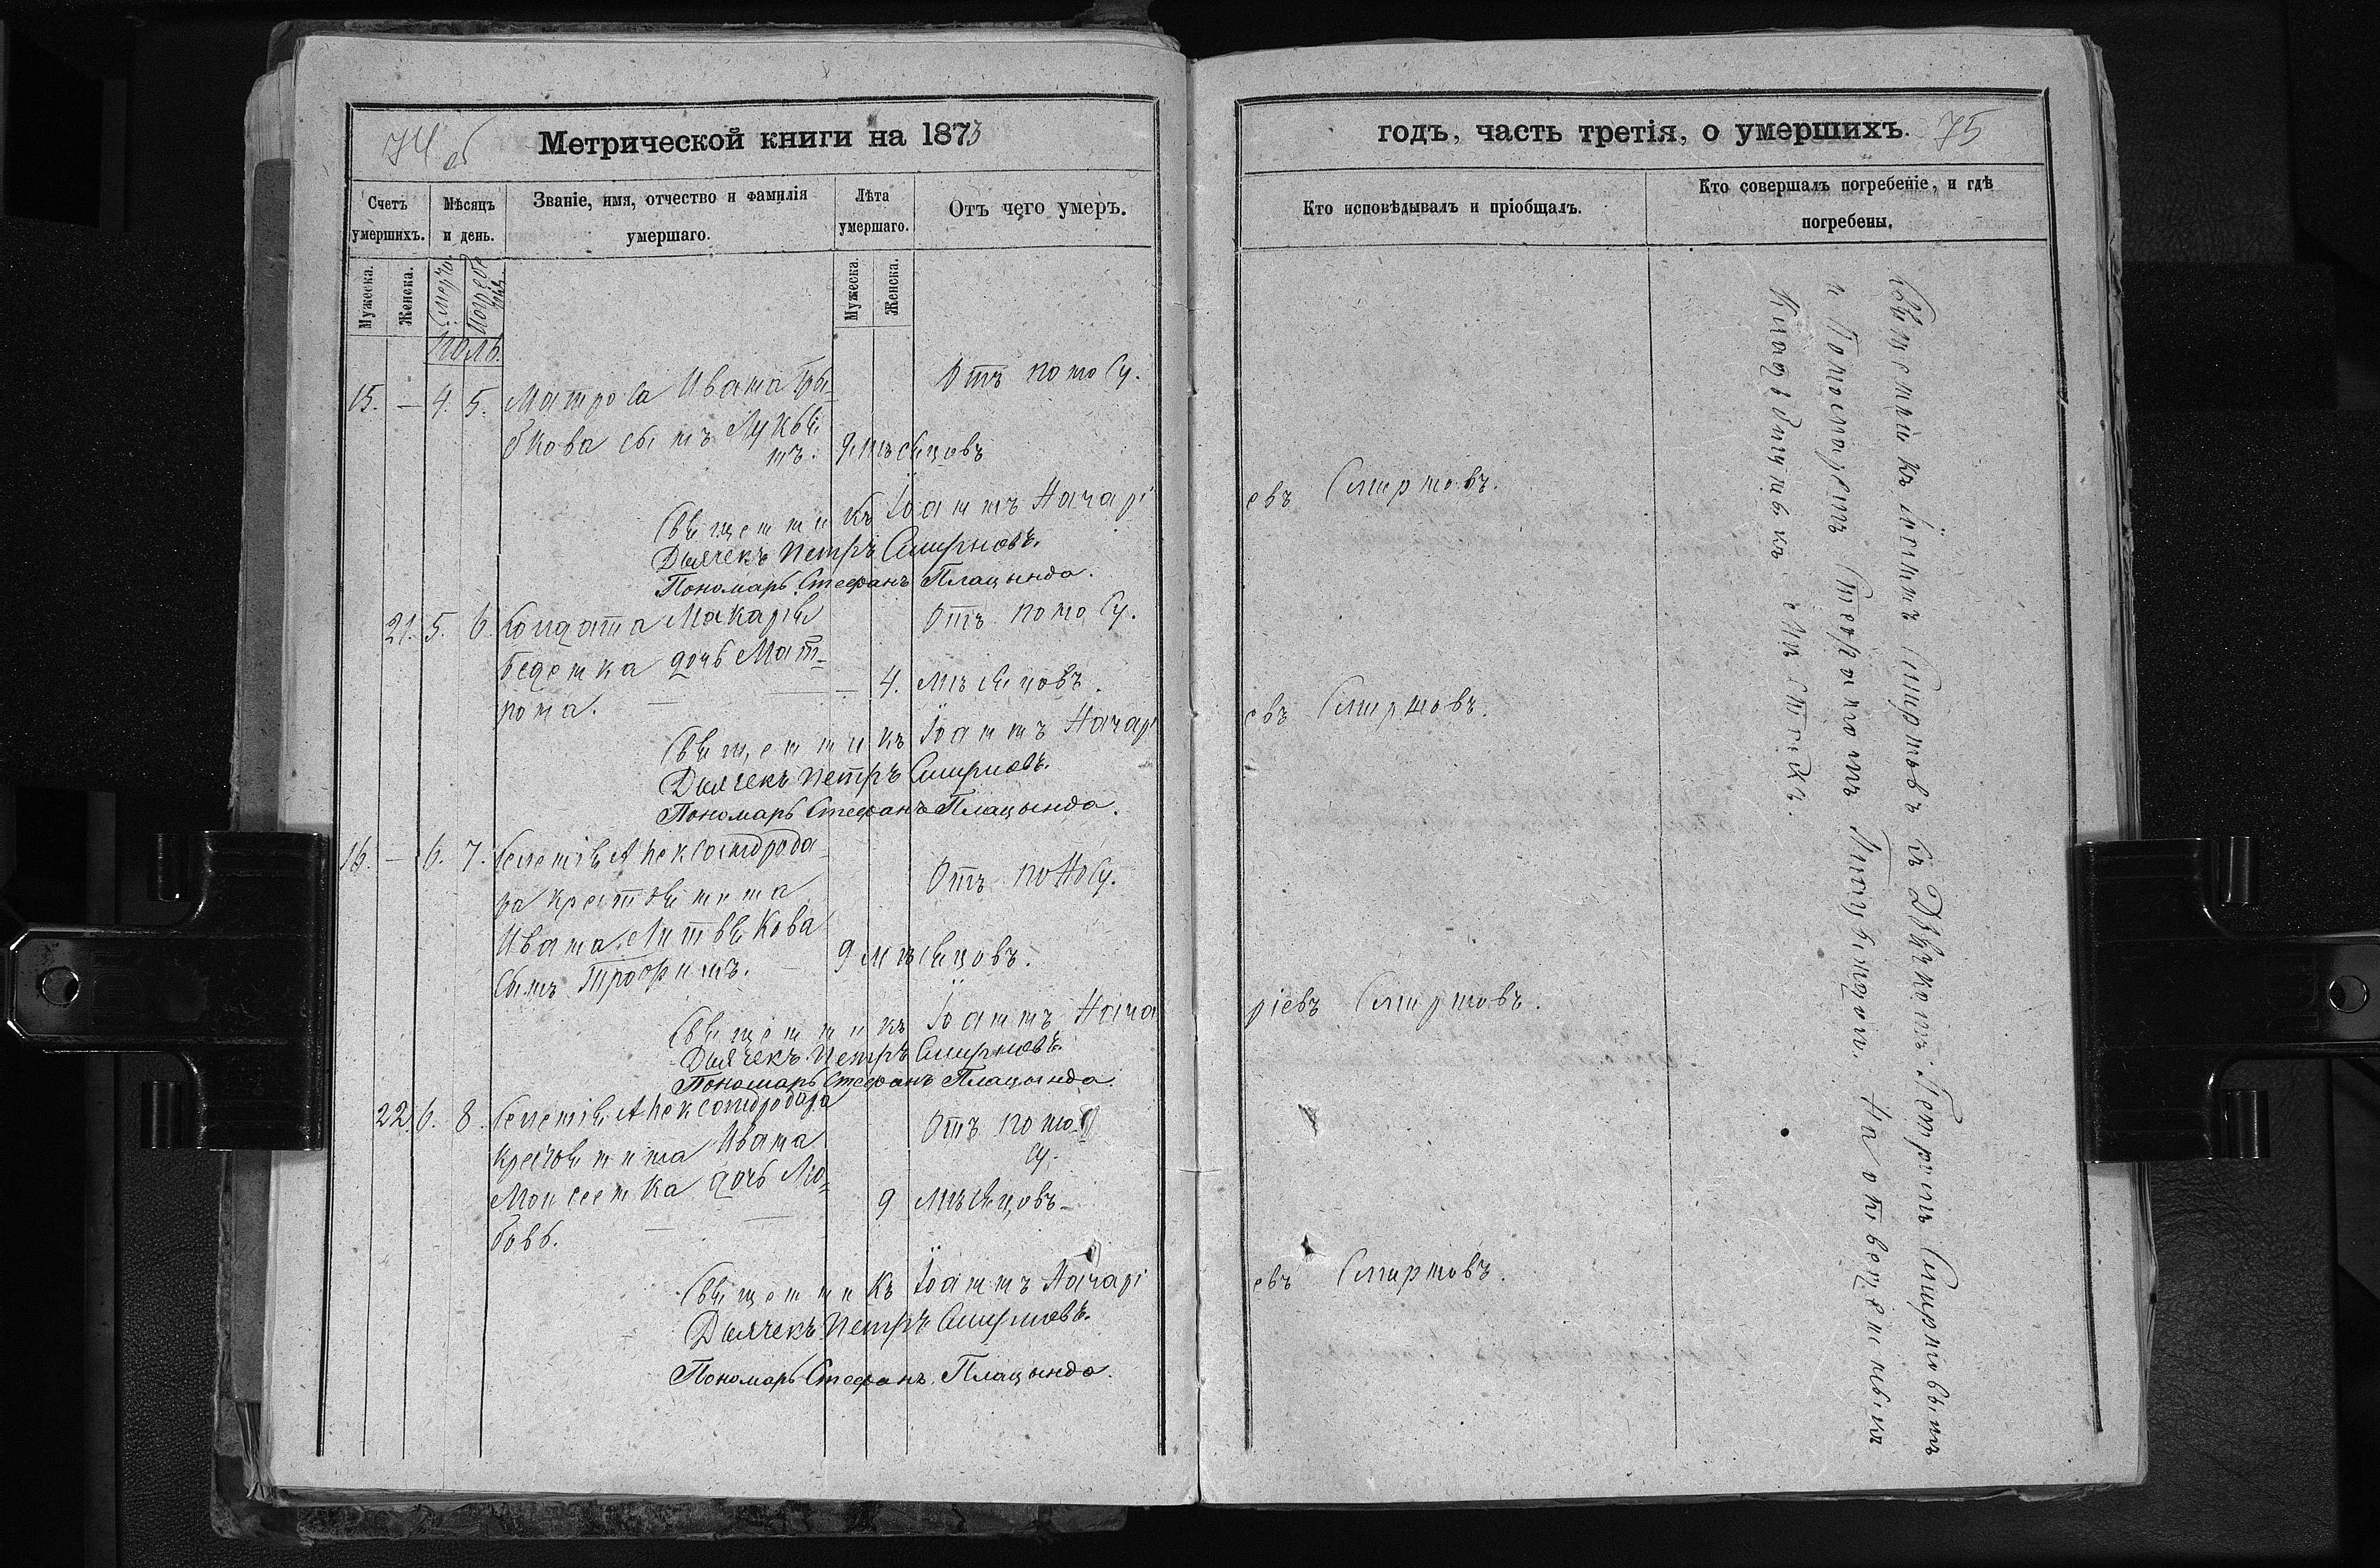 74 об
Метрической книги на 1873
Счетъ умершихъ.
Мѣсяцъ и день.
Званіе, имя, отчество и фамилія умершаго.
Лѣта умершаго.
Отъ чего умеръ.
Мужеска.
Женска.
Смерти
Погребенія
Мужеска
Женска.
Іюль.
15. — 4. 5. Матроса Ивана Цы- Отъ поносу.
бкова сынъ Лукья-
нъ. 9. мѣсяцовъ
Священникъ Іоаннъ Назарі
Дьячекъ Петръ Смирновъ.
Пономарь Стефанъ Плацында.
21. 5. 6. Солдата Макарія Отъ поносу.
дочь Мат-
рона. — 4. мѣсяцовъ.
Священникъ Іоаннъ Назарі
Дьячекъ Петръ Смирновъ.
Пономарь Стефанъ Плацында.
16. — 6. 7. Селенія Александрода-
ра крестьянина Отъ поносу.
Ивана Литвякова
сынъ Трофимъ. 9 мѣсяцовъ.
Священникъ Іоаннъ Наза
Дьячекъ Петръ Смирновъ.
Пономарь Стефанъ Плацында.
22. 6. 8. Селенія Александродара Отъ поно-
крестьянина Ивана су.
Моисеенка дочь Лю- 9 мѣсяцовъ
бовь.
Священникъ Іоаннъ Назарі
Дьячекъ Петръ Смирновъ.
Пономарь Стефанъ Плацында.
годъ, часть третія, о умершихъ. 75
Кто исповѣдывалъ и пріобщалъ.
Кто совершалъ погребеніе, и гдѣ погребены.
евъ Смирновъ.
евъ Смирновъ.
ріевъ Смирновъ.
евъ Смирновъ.
Священникъ Іоаннъ Смирновъ съ Дьячкомъ Петромъ Смирновымъ
и Пономаремъ Стефаномъ Плацындою. На отведенныхъ
Кладбищахъ